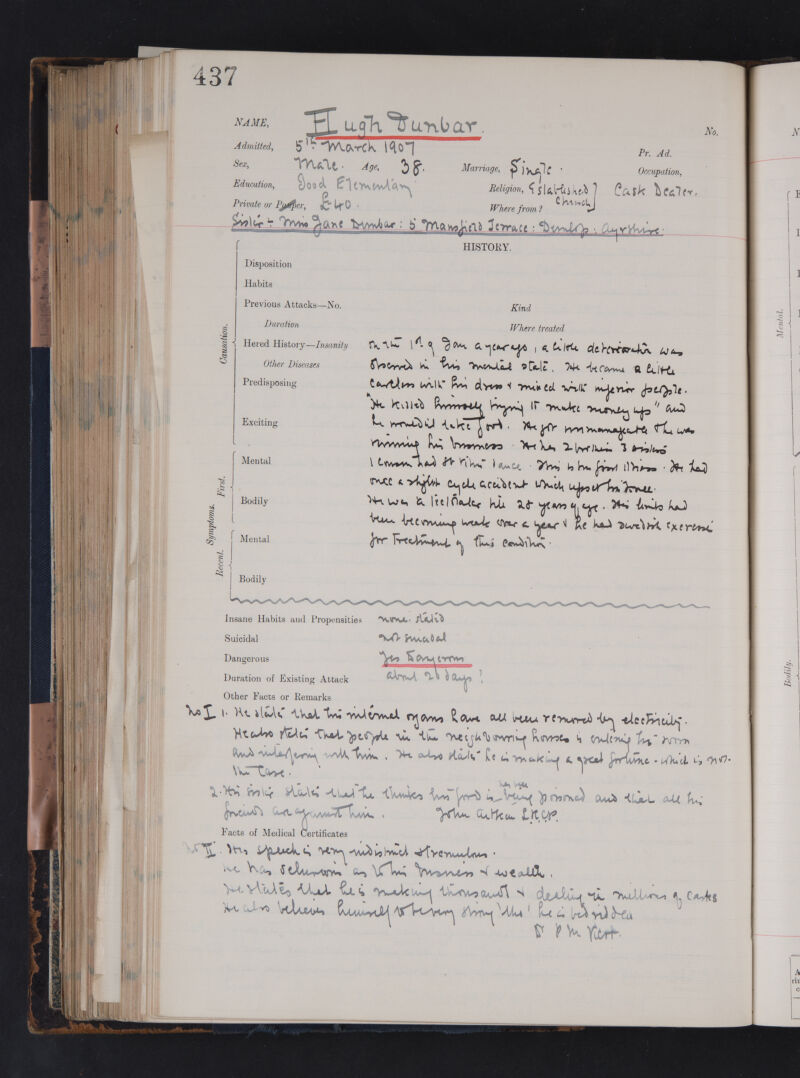 437
NAME, Hugh Dunbar.
No.
Admitted, 5th March 1907
Pr. Ad.
Sex, Male. Age, 38. Marriage, Single. Occupation,
Education, Good Elementary Religion, Established Church Cask Dealer.
Private or Pauper, £40. Where from?
Sister: Miss Jane Dunbar: 5 Mansfield Terrace: Dunlop: Ayrshire.
HISTORY.
Disposition
Habits
Previous Attacks—No. Kind
Duration Where treated
Causation.
Hered History—Insanity On the 1st of Jan a year ago, a little deterioration was
Other Diseases observed in his mental state. He became a little
Predisposing careless with his dress & mixed with inferior people.
"He killed himself trying to make money up" and
Exciting he wouldn't take food. He got unmanageable & he was
ruining his business. He has 2 brothers 3 sisters
Symptoms. First.
Mental 1 cousin had St Vitus' dance. This is his first illness. He had
once a slight cycle accident which upset his
Bodily He was a teetotaler till 28 years of age. His limbs had
been becoming weak over a year & he had Swedish exercise
Recent.
Mental for Treatment of this condition.
Bodily
Insane Habits and Propensities none stated
Suicidal not suicidal
Dangerous Yes Dangerous
Duration of Existing Attack about 20 days?
Other Facts or Remarks
No I 1. He states that his internal organs have all been removed by electricity.
He also states that people in the neighbouring houses is entering his room
and interfering with him. He also states he is making a great fortune - which is not
the case.
2. His sister states that he thinks his food is being poisoned and that all his
friends are against him. John Aitken L.R.C.P.
Facts of Medical Certificates
No II. His speech is very indistinct & tremulous.
he has delusions as to his business & wealth.
He states that he is making thousands & dealing in millions of casks
He also believes himself to be very strong tho' he is bedridden
D P M Kerr.
Mental.
Bodily.